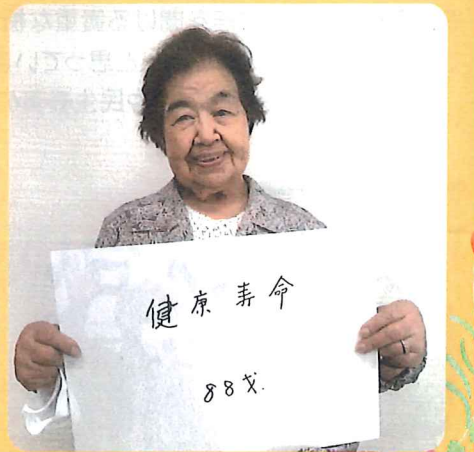 健康寿命
88才.